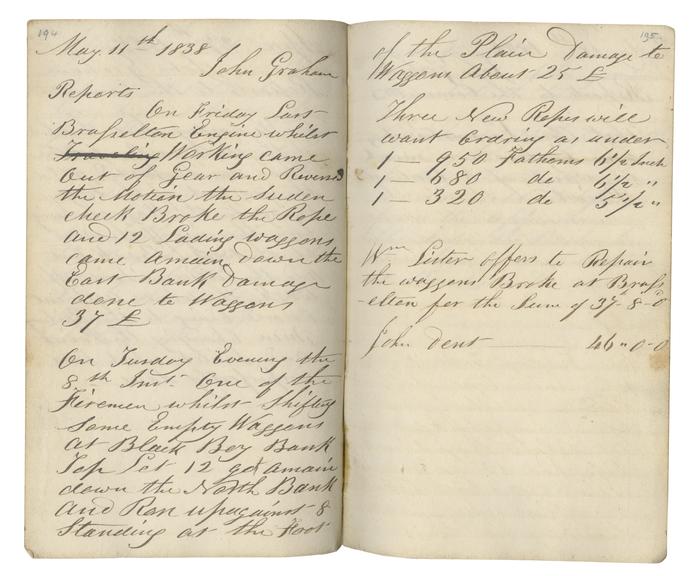 194
May 11th 1838
John Graham
Reports
On Friday Last
Brasselton Engine whilst
Traveling Working came
Out of Gear and
the Motion the suden
check Broke the Rope
and 12 Lading waggons
came amain down the
East Bank Damage
done to Waggons
37 £
On Tusday Evening the
8th Inst. One of the
Firemen whilst Shifting
Some Empty Waggons
at Black Boy Bank
Top Let 12 go amain
down the North Bank
and Ran up against 8
Standing at the Foot
195
of the Plain Damage to
Waggons About 25 £
Three New Ropes will
want Ordring as under
1 — 950 Fathoms 6 1/2 Inch
1 — 680 do 6 1/2 "
1 — 320 do 5 1/2 "
Wm Lister offers to Repair
the waggons Broke at Brass
-elton for the Sum of 37-8-0
John Dent — 46"0-0